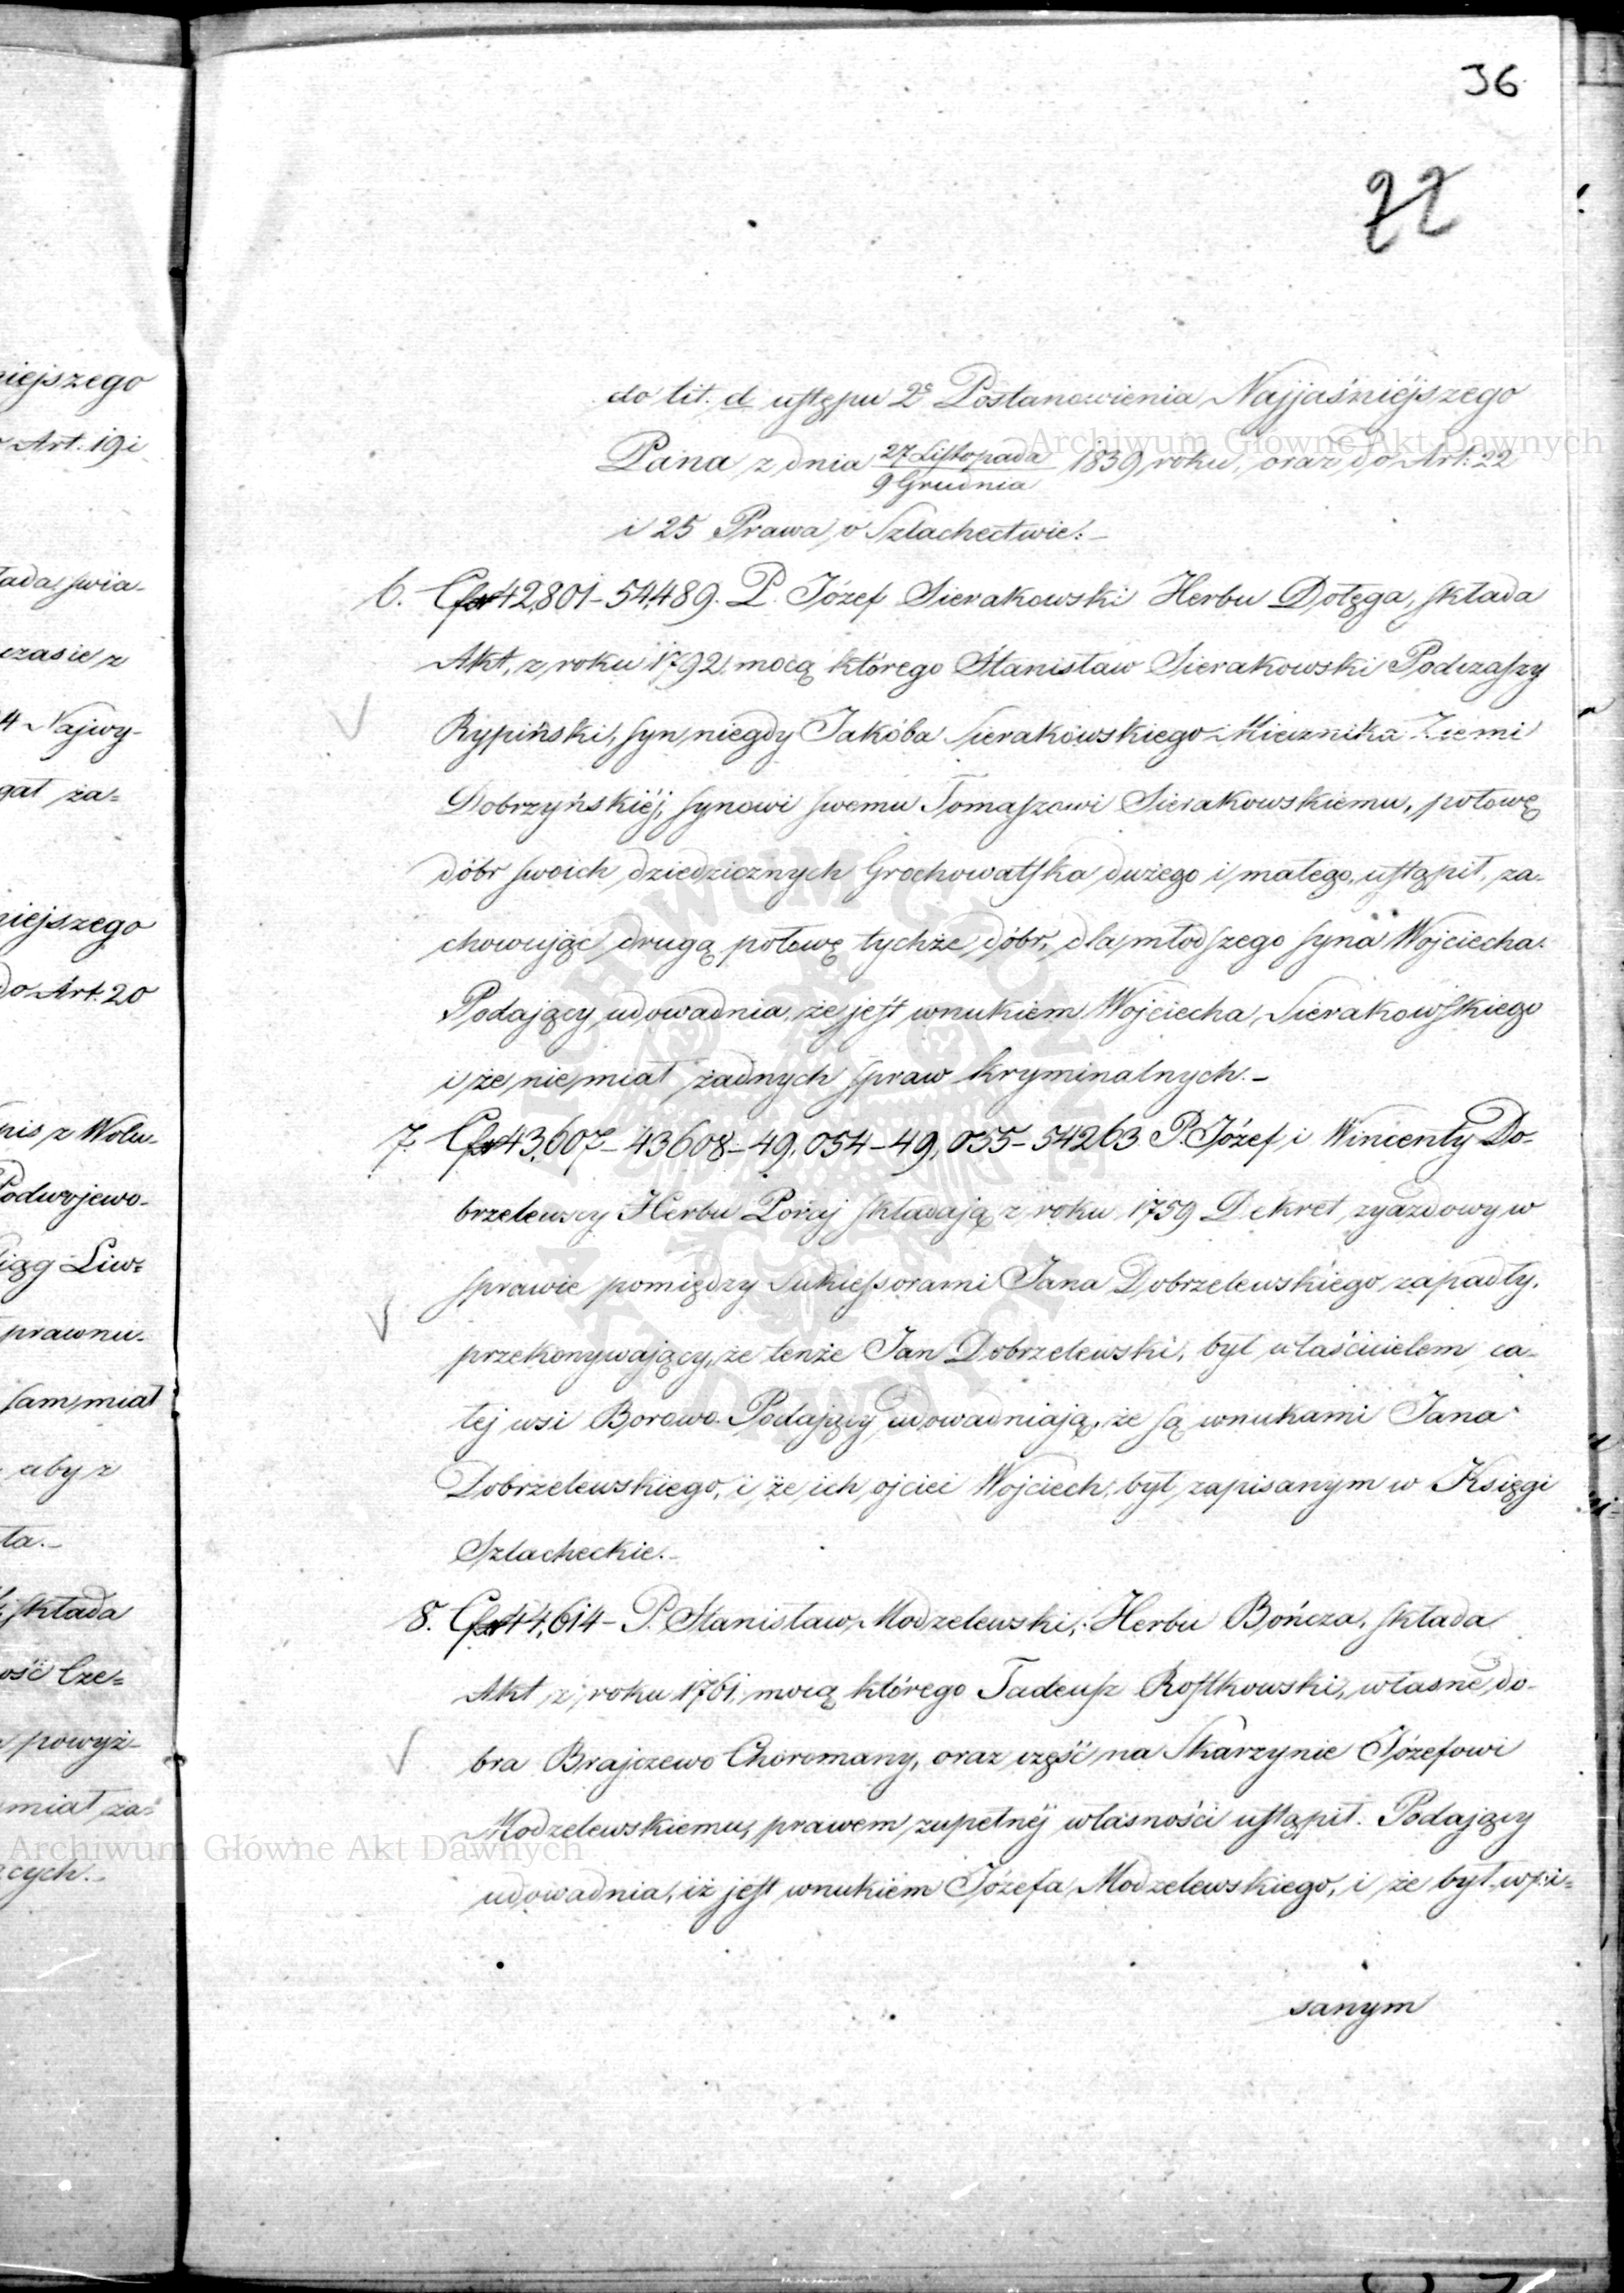 36
22
do lit. d ustępu 2o Postanowienia Najjaśniéjszego
Pana z dnia 27 Listopada / 9 Grudnia 1839 roku, oraz do Art: 22
i 25 Prawa o Szlachectwie.-
6. 42,801-54,489. P. Józef Sierakowski Herbu Dołęga, składa
Akt, z roku 1792, mocą którego Stanisław Sierakowski Podczaszy
Rypiński, syn niegdy Jakóba Sierakowskiego Miecznika Ziemi
Dobrzyńskiéj, synowi swemu Tomaszowi Sierakowskiemu, połowę
dóbr swoich dziedzicznych Grochowalska dużego i małego, ustąpił, za-
chowując drugą połowę tychże dóbr, dla młodszego syna Wojciecha.
Podający udowadnia, że jest wnukiem Wojciecha Sierakowskiego
i że nie miał żadnych spraw kryminalnych.-
7. 43,607-43608-49,054-49,055-54263 P. Józef i Wincenty Do-
brzelewscy Herbu Poraj składają z roku 1759 Dekret zjazdowy w
sprawie pomiędzy Sukcessorami Jana Dobrzelewskiego zapadły,
przekonywający, że tenże Jan Dobrzelewski, był właścicielem ca-
łej wsi Borowo. Podający udowadniają, że są wnukami Jana
Dobrzelewskiego, i że ich ojciec Wojciech, był zapisanym w Księgi
Szlacheckie.-
8. 44,614- P. Stanisław Modzelewski, Herbu Bończa, składa
Akt z roku 1761, mocą którego Tadeusz Rostkowski, własne do-
bra Brajczewo Choromany, oraz część na Skarzynie Józefowi
Modzelewskiemu, prawem zupełnéj własności ustąpił. Podający
udowadnia, iż jest wnukiem Józefa Modzelewskiego, i że był wpi-
sanym
niejszego
Art. 19 i
czasie z
Najwy-
niejszego
do Art. 20
pis z Wolu-
Podwojewo-
prawnu-
sam miał
aby z
składa
powyż-
miał ża-
Archiwum Główne Akt Dawnych
Archiwum Główne Akt Dawnych
ARCHIWUM GŁÓWNE
AKT DAWNYCH